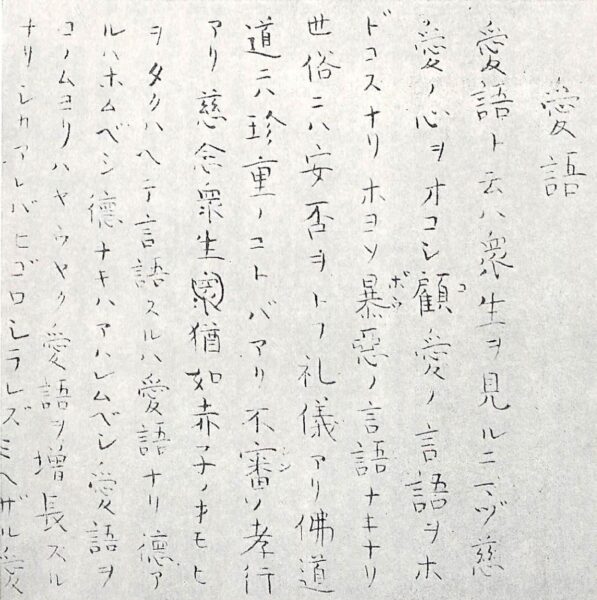 愛語
愛語ト云ハ衆生ヲ見ルニマヅ慈
愛ノ心ヲオコシ顧愛ノ言語ヲホ
ドコスナリホヨソ暴惡ノ言語ナキナリ
世俗ニハ安否ヲトフ礼儀アリ佛道
道ニハ珍重ノコトバアリ不審ノ孝行
アリ慈念衆生猶如赤子ノオモヒ
ヲタクハヘテ言語スルハ愛語ナリ德ア
ルハホムベシ德ナキハアハレムベシ愛語ヲ
コノムヨリハヤウヤク愛語ヲ増長スル
ナリシカアレバヒゴロシラレズミヘザル愛